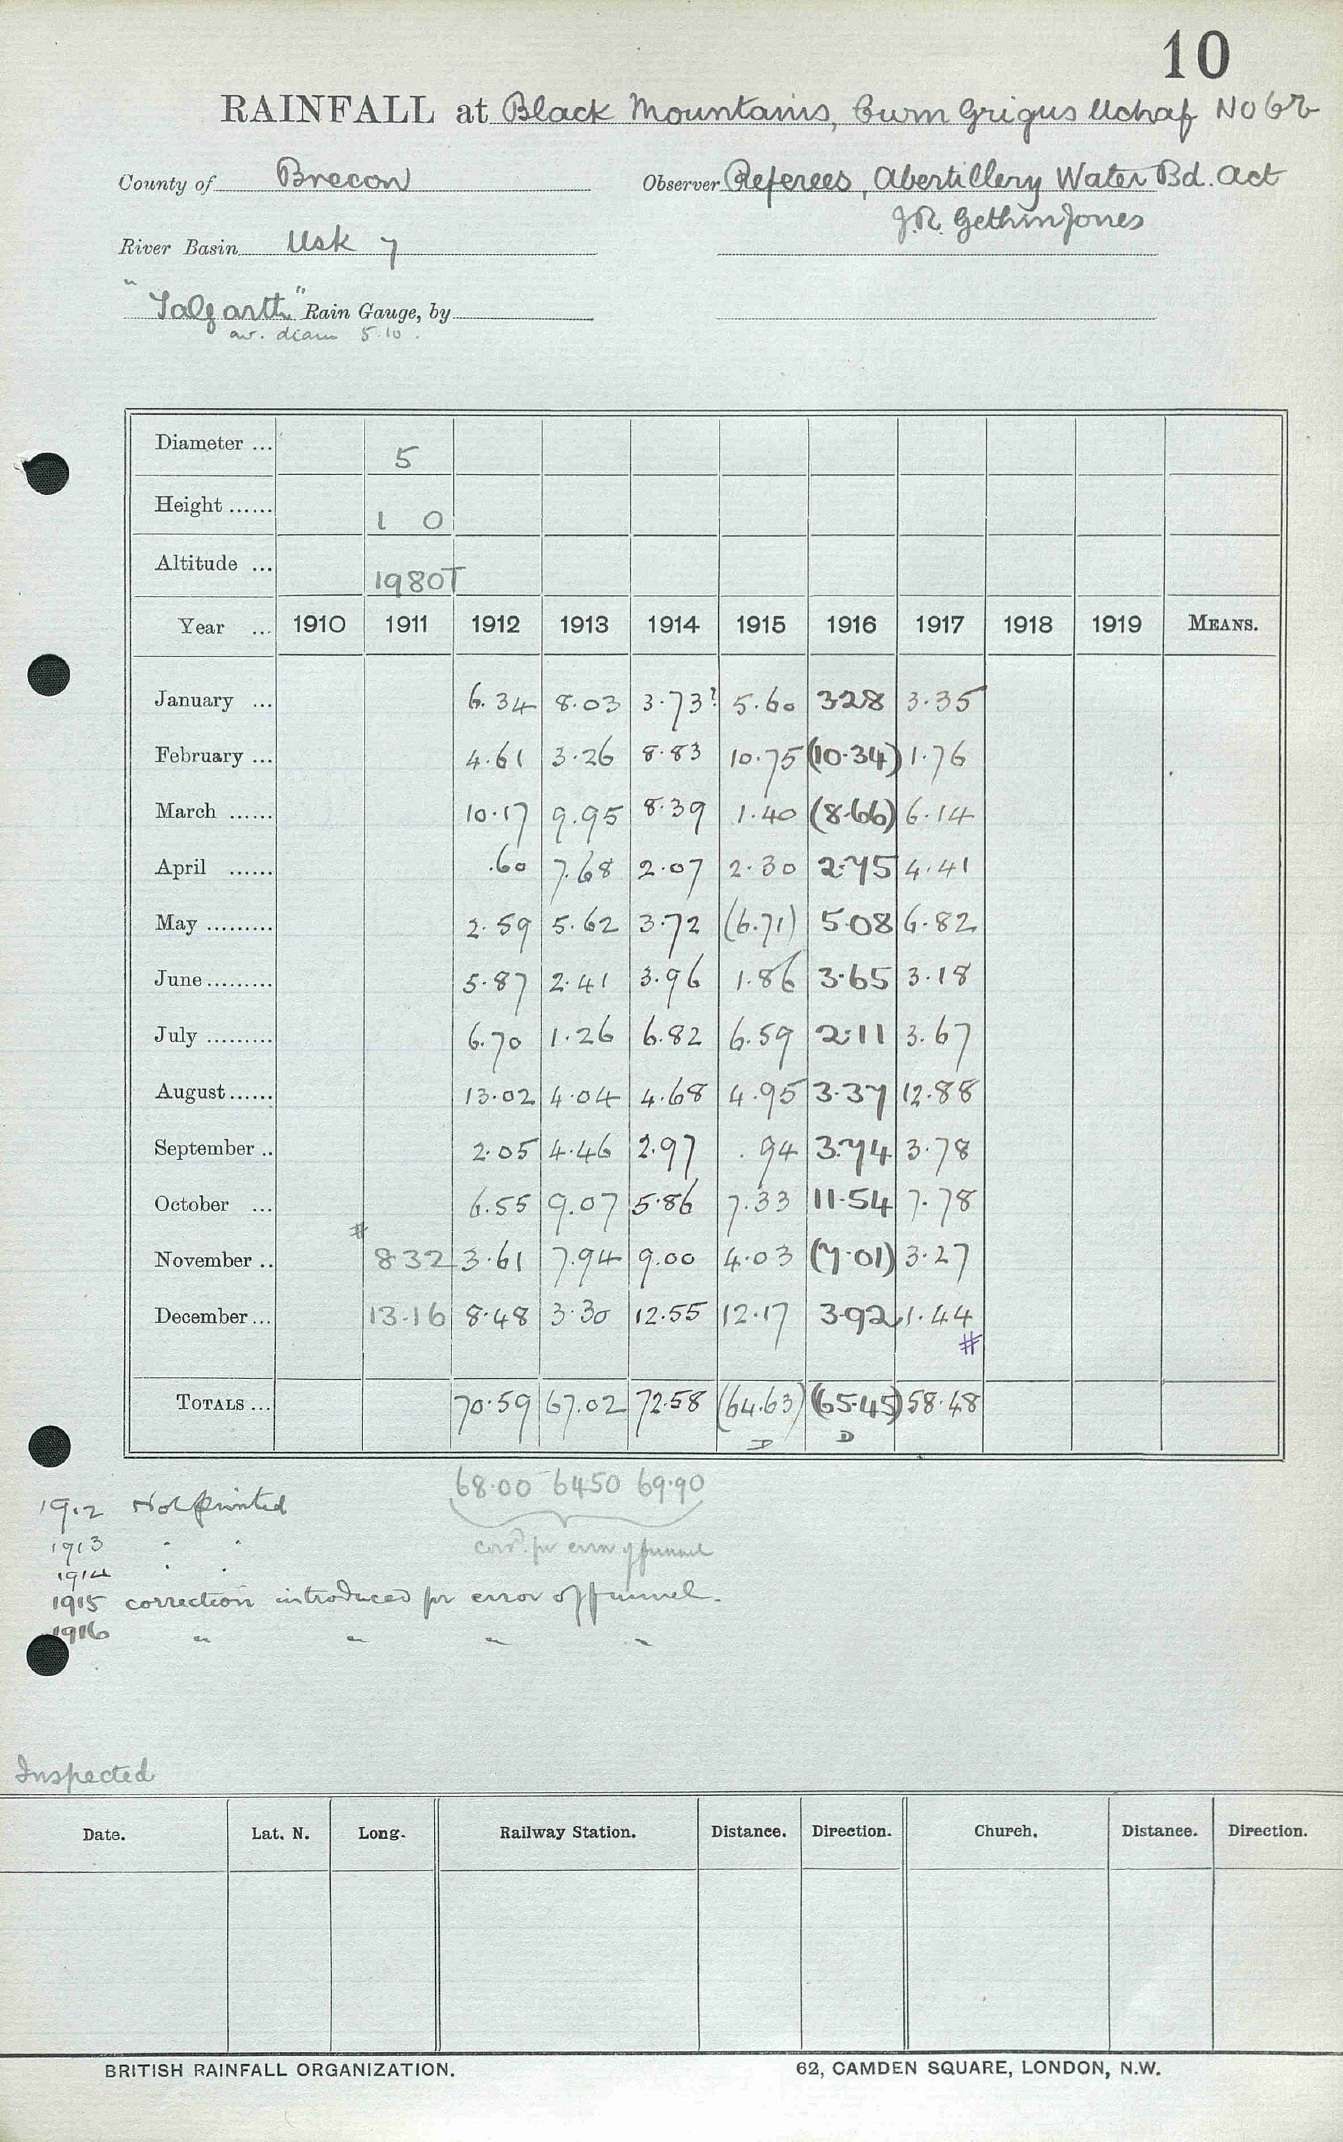 10
RAINFALL at Black Mountains, Cwm Grigws Uchaf No 6b
County of Brecon Observer Referees, Abertillery Water Bd. Act
J.R. Gethin Jones
River Basin Usk 7
"Talgarth" Rain Gauge, by
av. diam 5.10.
Diameter ... 5
Height ...... 1 0
Altitude ... 1980T
Year ... 1910 1911 1912 1913 1914 1915 1916 1917 1918 1919 MEANS.
January ... 6.34 8.03 3.73? 5.60 3.28 3.35
February ... 4.61 3.26 8.83 10.75 (10.34) 1.76
March ...... 10.17 9.95 8.39 1.40 (8.66) 6.14
April ...... .60 7.68 2.07 2.30 2.75 4.41
May ......... 2.59 5.62 3.72 (6.71) 5.08 6.82
June ......... 5.87 2.41 3.96 1.86 3.65 3.18
July ......... 6.70 1.26 6.82 6.59 2.11 3.67
August ...... 13.02 4.04 4.68 4.95 3.37 12.88
September .. 2.05 4.46 2.97 .94 3.74 3.78
October ... 6.55 9.07 5.86 7.33 11.54 7.78
#
November .. 8.32 3.61 7.94 9.00 4.03 (7.01) 3.27
December ... 13.16 8.48 3.30 12.55 12.17 3.92 1.44
#
TOTALS ... 70.59 67.02 72.58 (64.63) (65.45) 58.48
D D
68.00 64.50 69.90
corrd. for error of funnel
1912 Not printed
1913 " "
1914 " "
1915 correction introduced for error of funnel.
1916 " " " "
Inspected
Date. Lat. N. Long. Railway Station. Distance. Direction. Church. Distance. Direction.
BRITISH RAINFALL ORGANIZATION. 62, CAMDEN SQUARE, LONDON, N.W.